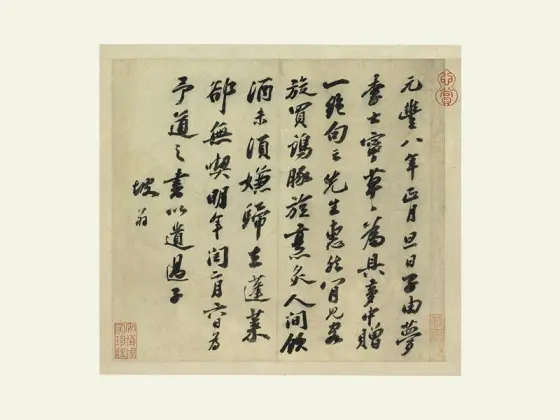 元豐八年正月旦日子由夢
李士寧草〻為具夢中贈
一絕句云先生惠然肯見客
旋買鷄豚旋烹炙人間飲
酒未須嫌歸去蓬萊
卻無喫明年閏二月六日為
予道之書以遺過子
坡翁